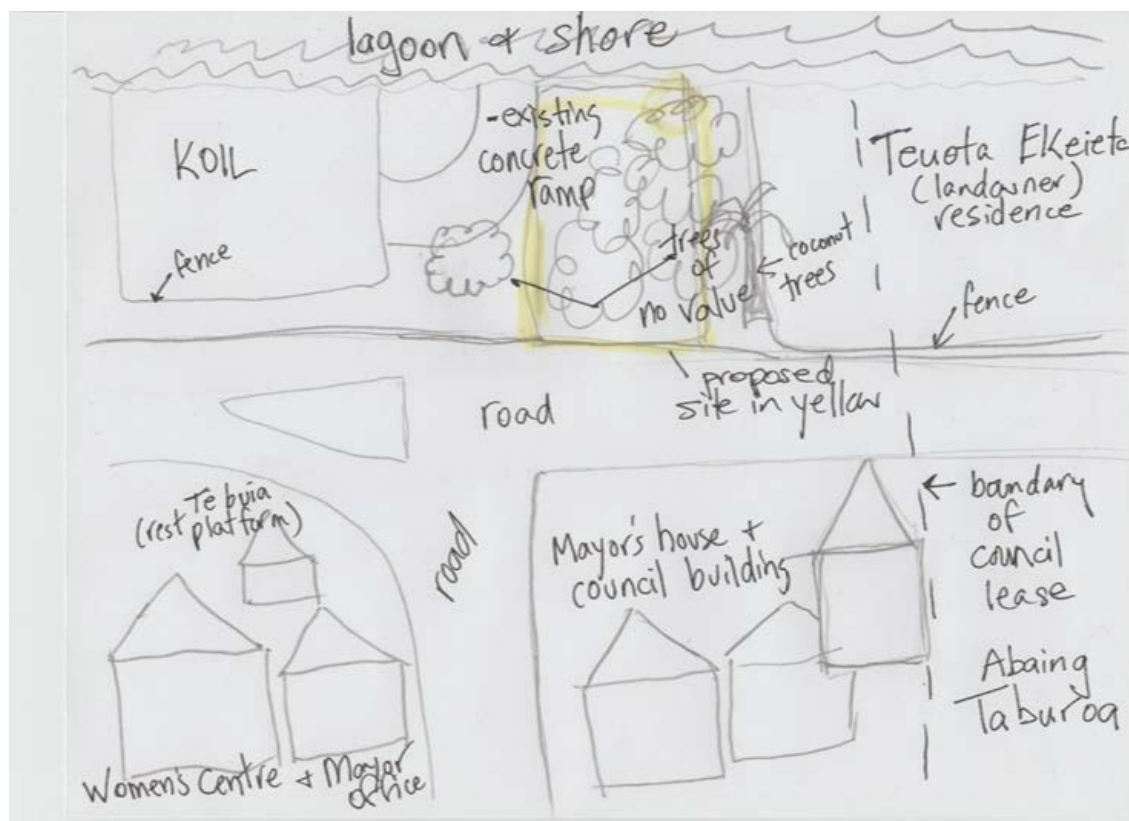 lagoon & shore
KOIL
fence
-existing
concrete
ramp
trees
of
no value
coconut
trees
Teuota Ekeieta
(landowner)
residence
fence
proposed
site in yellow
road
Te buia
(rest platform)
road
Mayor's house +
council building
bandary
of
council
lease
Abaing
Taburoa
Women's Centre + Mayor
office